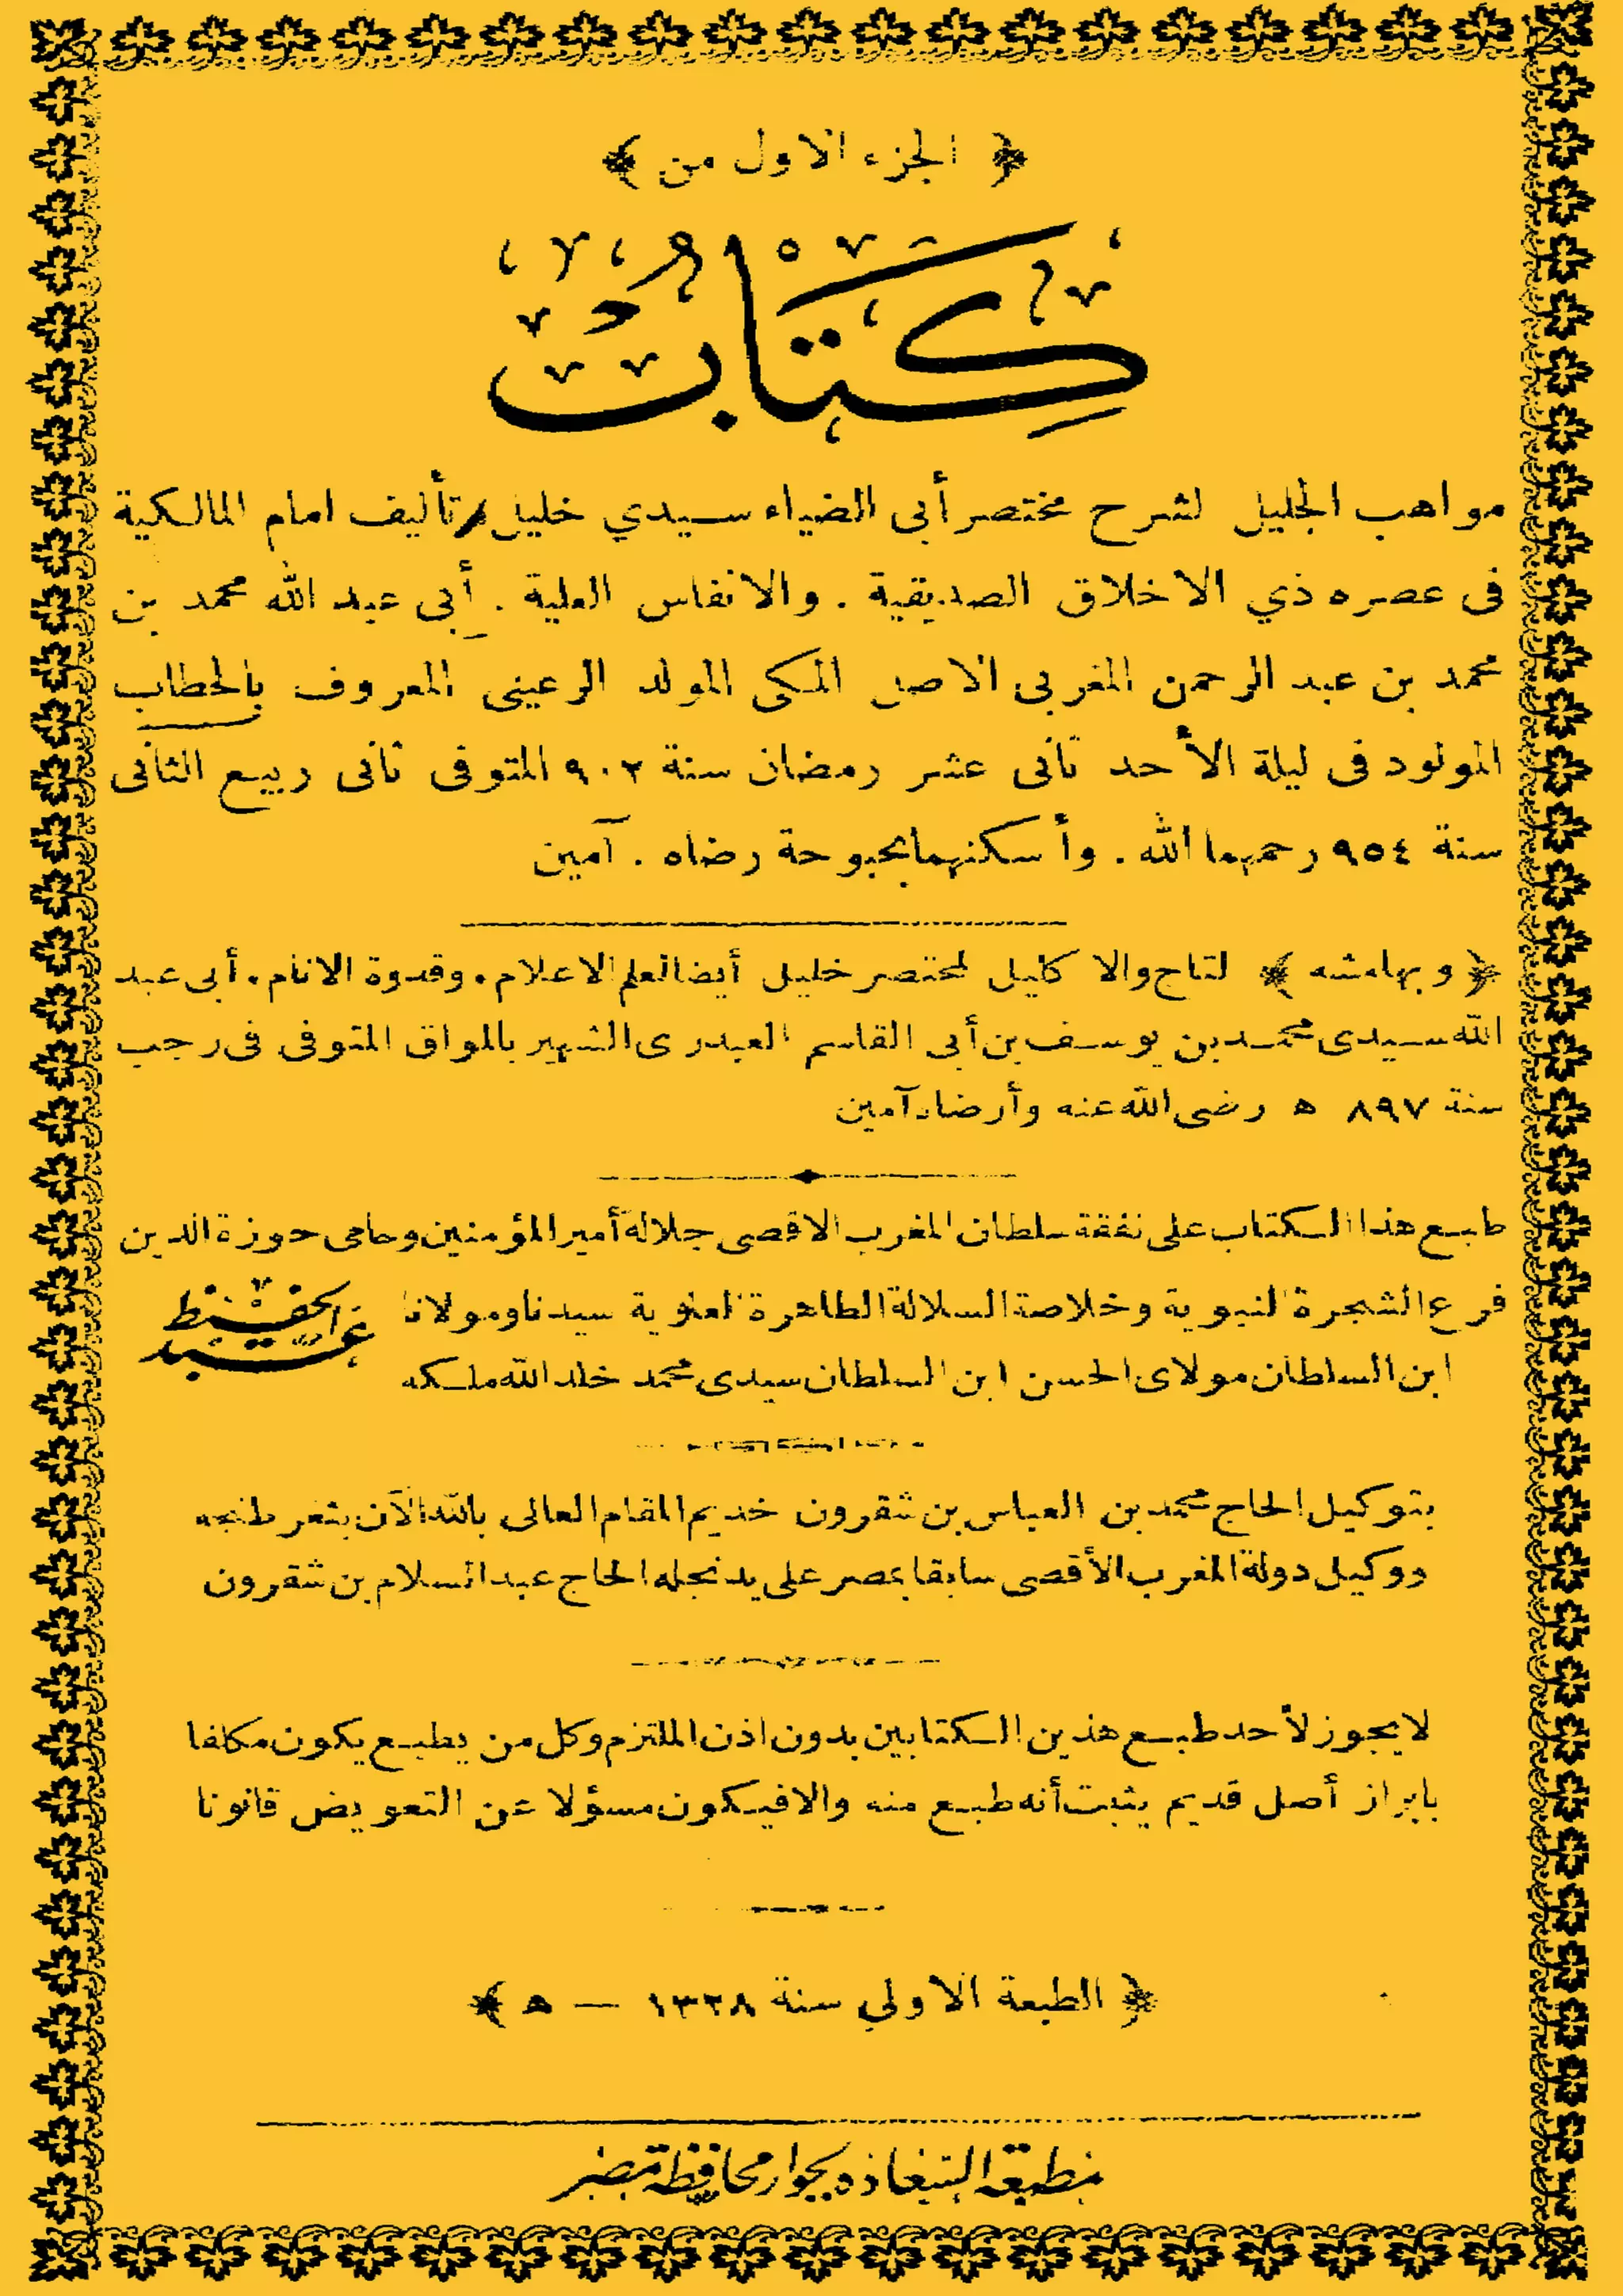 ﴿ الجزء الاول من ﴾
كِتَابُ
مواهب الجليل لشرح مختصر أبى الضياء سيدي خليل تأليف امام المالكية
فى عصره ذي الاخلاق الصديقية . والانفاس العلية . أبى عبد الله محمد بن
محمد بن عبد الرحمن المغربى الاصل المكى المولد الرعينى المعروف بالحطاب
المولود فى ليلة الأحد ثانى عشر رمضان سنة ٩٠٢ المتوفى ثانى ربيع الثانى
سنة ٩٥٤ رحمهما الله . وأسكنهما بحبوحة رضاه . آمين
﴿ وبهامشه ﴾ لتاج والاكليل لمختصر خليل أيضا لعلم الاعلام . وقدوة الانام . أبى عبد
الله سيدى محمد بن يوسف بن أبى القاسم العبدرى الشهير بالمواق المتوفى فى رجب
سنة ٨٩٧ ه رضى الله عنه وأرضاه آمين
طبع هذا الكتاب على نفقة سلطان المغرب الاقصى جلالة أمير المؤمنين وحامى حوزة الدين
فرع الشجرة النبوية وخلاصة السلالة الطاهرة العلوية سيدنا ومولانا عبد الحفيظ
ابن السلطان مولاى الحسن ابن السلطان سيدى محمد خلد الله ملكه
بتوكيل الحاج محمد بن العباس بن شقرون خديم المقام العالى بالله الآن بثغر طنجه
ووكيل دولة المغرب الأقصى سابقا بمصر على يد نجله الحاج عبد السلام بن شقرون
لا يجوز لأحد طبع هذين الكتابين بدون اذن الملتزم وكل من يطبع يكون مكلفا
بابراز أصل قديم يثبت أنه طبع منه والا فيكون مسؤلا عن التعويض قانونا
﴿ الطبعة الاولي سنة ١٣٢٨ — ه ﴾
مطبعة السعاده بجوار محافظة مصر